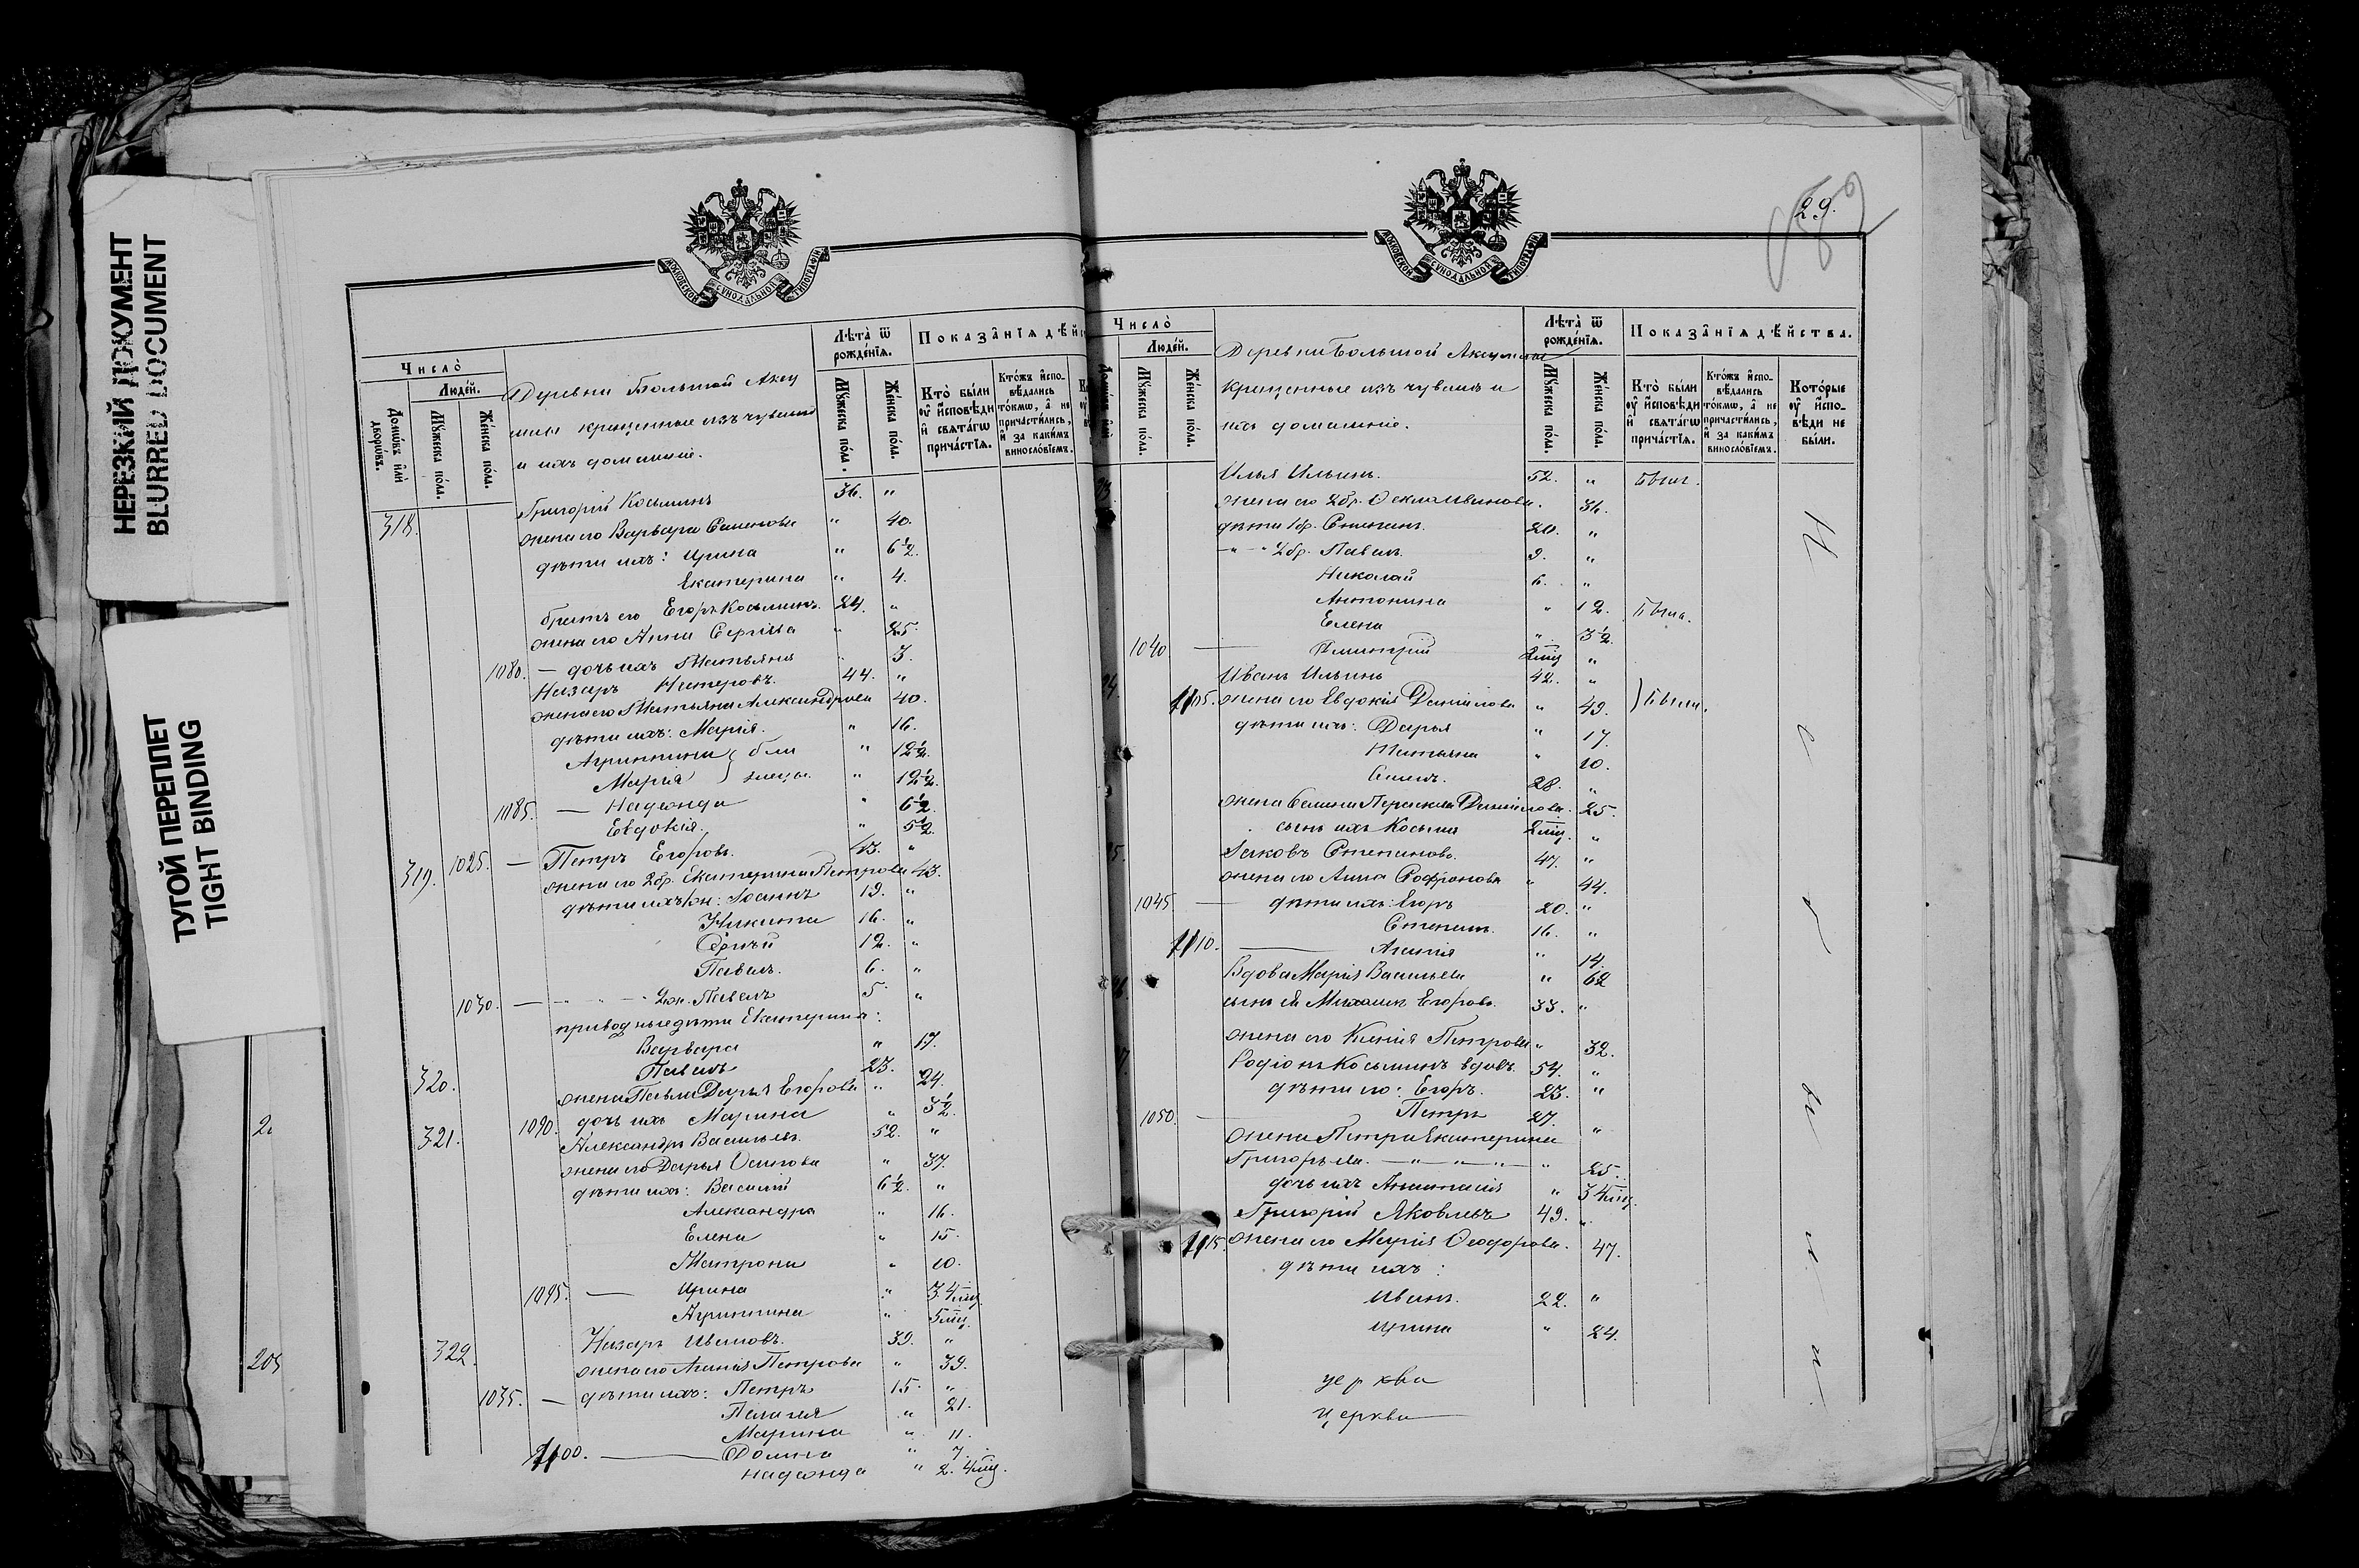 НЕРЕЗКИЙ ДОКУМЕНТ
BLURRED DOCUMENT
ТУГОЙ ПЕРЕПЛЕТ
TIGHT BINDING
МОСКОВСКОЙ СѴНОДАЛЬНОЙ ТИПОГРАФІИ
Число̀
Люде́й.
Домѡ́въ и҆лѝ дворѡ́въ.
Мꙋ́жеска по́ла.
Же́нска по́ла.
Деревни Большой Аксу
крещенные изъ чувашъ
и ихъ домашніе.
Лѣта̀ ѿ рожде́нїѧ.
Мꙋ́жеска по́ла.
Же́нска по́ла.
Показа̂нїѧ дѣ́й
Кто̀ бы́ли оу҆ и҆сповѣди и҆ свѧта́гѡ прича́стїѧ.
Кто́жъ и҆сповѣ́дались то́кмѡ, а҆ не причасти́лись, и҆ за каки́мъ винослѡ́вїемъ.
318. Григорій Косьминъ 36. "
жена его Варвара Семенова " 40.
дѣти ихъ: Ирина " 6½.
Екатерина " 4.
братъ его Егоръ Косьминъ. 24. "
жена его Анна Сергѣева " 25.
1080. — дочь ихъ Татьяна " 3.
Назаръ Петровъ. 44. "
жена его Татьяна Александрова 40.
дѣти ихъ: Марія. " 16.
Агриппина } бли " 12½.
Марія } знецы. " 12½.
1085. — Надежда " 6½.
Евдокія. " 5½.
319. 1025. — Петръ Егоровъ. 43. "
жена его 2 бр. Екатерина Петрова 43.
дѣти ихъ 1 ж: Іоаннъ 19. "
Никита 16. "
12. "
Павелъ. 6. "
1030. — " — " 2 ж. Павелъ 5 "
приводныедѣти Екатерины:
Варвара " 17.
320. Павелъ 23. "
жена Павла Дарья Егорова " 24.
дочь ихъ Марина " 3½.
321. 1090. Александръ Васильевъ. 52. "
жена его Дарья Осипова " 37.
дѣти ихъ: Василій 6½. "
Александра " 16.
Елена " 15.
Матрона " 10.
1095. — Ирина " 3. 4 мц
Агриппина " 5 мц.
322. Назаръ Ивановъ. 39. "
жена его Агапія Петрова " 39.
1035. — дѣти ихъ: Петръ 15. "
Пелагея " 21.
Марина " 11.
1100. — Домна " 7.
Надежда " 2. 4 мц.
29.
МОСКОВСКОЙ СѴНОДАЛЬНОЙ ТИПОГРАФІИ
Число̀
Люде́й.
Мꙋ́жеска по́ла.
Же́нска по́ла.
Деревни Большой Аксу
крещенные изъ чувашъ и
ихъ домашніе.
Лѣта̀ ѿ рожде́нїѧ.
Мꙋ́жеска по́ла.
Же́нска по́ла.
Показа̂нїѧ дѣ́йства.
Кто̀ бы́ли оу҆ и҆сповѣди и҆ свѧта́гѡ прича́стїѧ.
Кто́жъ и҆сповѣ́дались то́кмѡ, а҆ не причасти́лись, и҆ за каки́мъ винослѡ́вїемъ.
Кото́рые оу҆ и҆сповѣди не бы́ли.
Илья Ильинъ. 52. " Былъ.
жена его 2 бр. Иванова. 36.
дѣти 1 бр. Степанъ. 20. "
" — " 2 бр. Павелъ. 9. "
Николай 6. "
Антонина " 12. Была.
Елена " 3½.
1040 — Димитрій 2 мц "
Иванъ Ильинъ 42. "
1105. жена его Евдокія Данилова " 49. } Были.
дѣти ихъ: Дарья " 17.
Татьяна " 10.
Семенъ. 28. "
жена Семена Параскева Данилова. 25.
сынъ ихъ Косьма 2 мц. "
Іаковъ Степановъ. 47. "
жена его Анна Софронова " 44.
1045 — дѣти ихъ: Егоръ 20. "
Степанъ. 16. "
1110. — Агапія " 14.
Вдова Марія Васильева " 62
сынъ ея Михаилъ Егоровъ. 33. "
жена его Ксенія Петрова " 32.
Родіонъ Косьминъ вдовъ. 54. "
дѣти его: Егоръ. 23. "
1050. — Петръ 27. "
жена Петра Екатерина
Григорьева. — " — " — " — " 25.
дочь ихъ Анастасія " 3 4 мц.
Григорій Яковлевъ 49. "
1115. жена его Марія Ѳеодорова. 47.
дѣти ихъ:
Иванъ. 22. "
Ирина " 24.
церква
церква